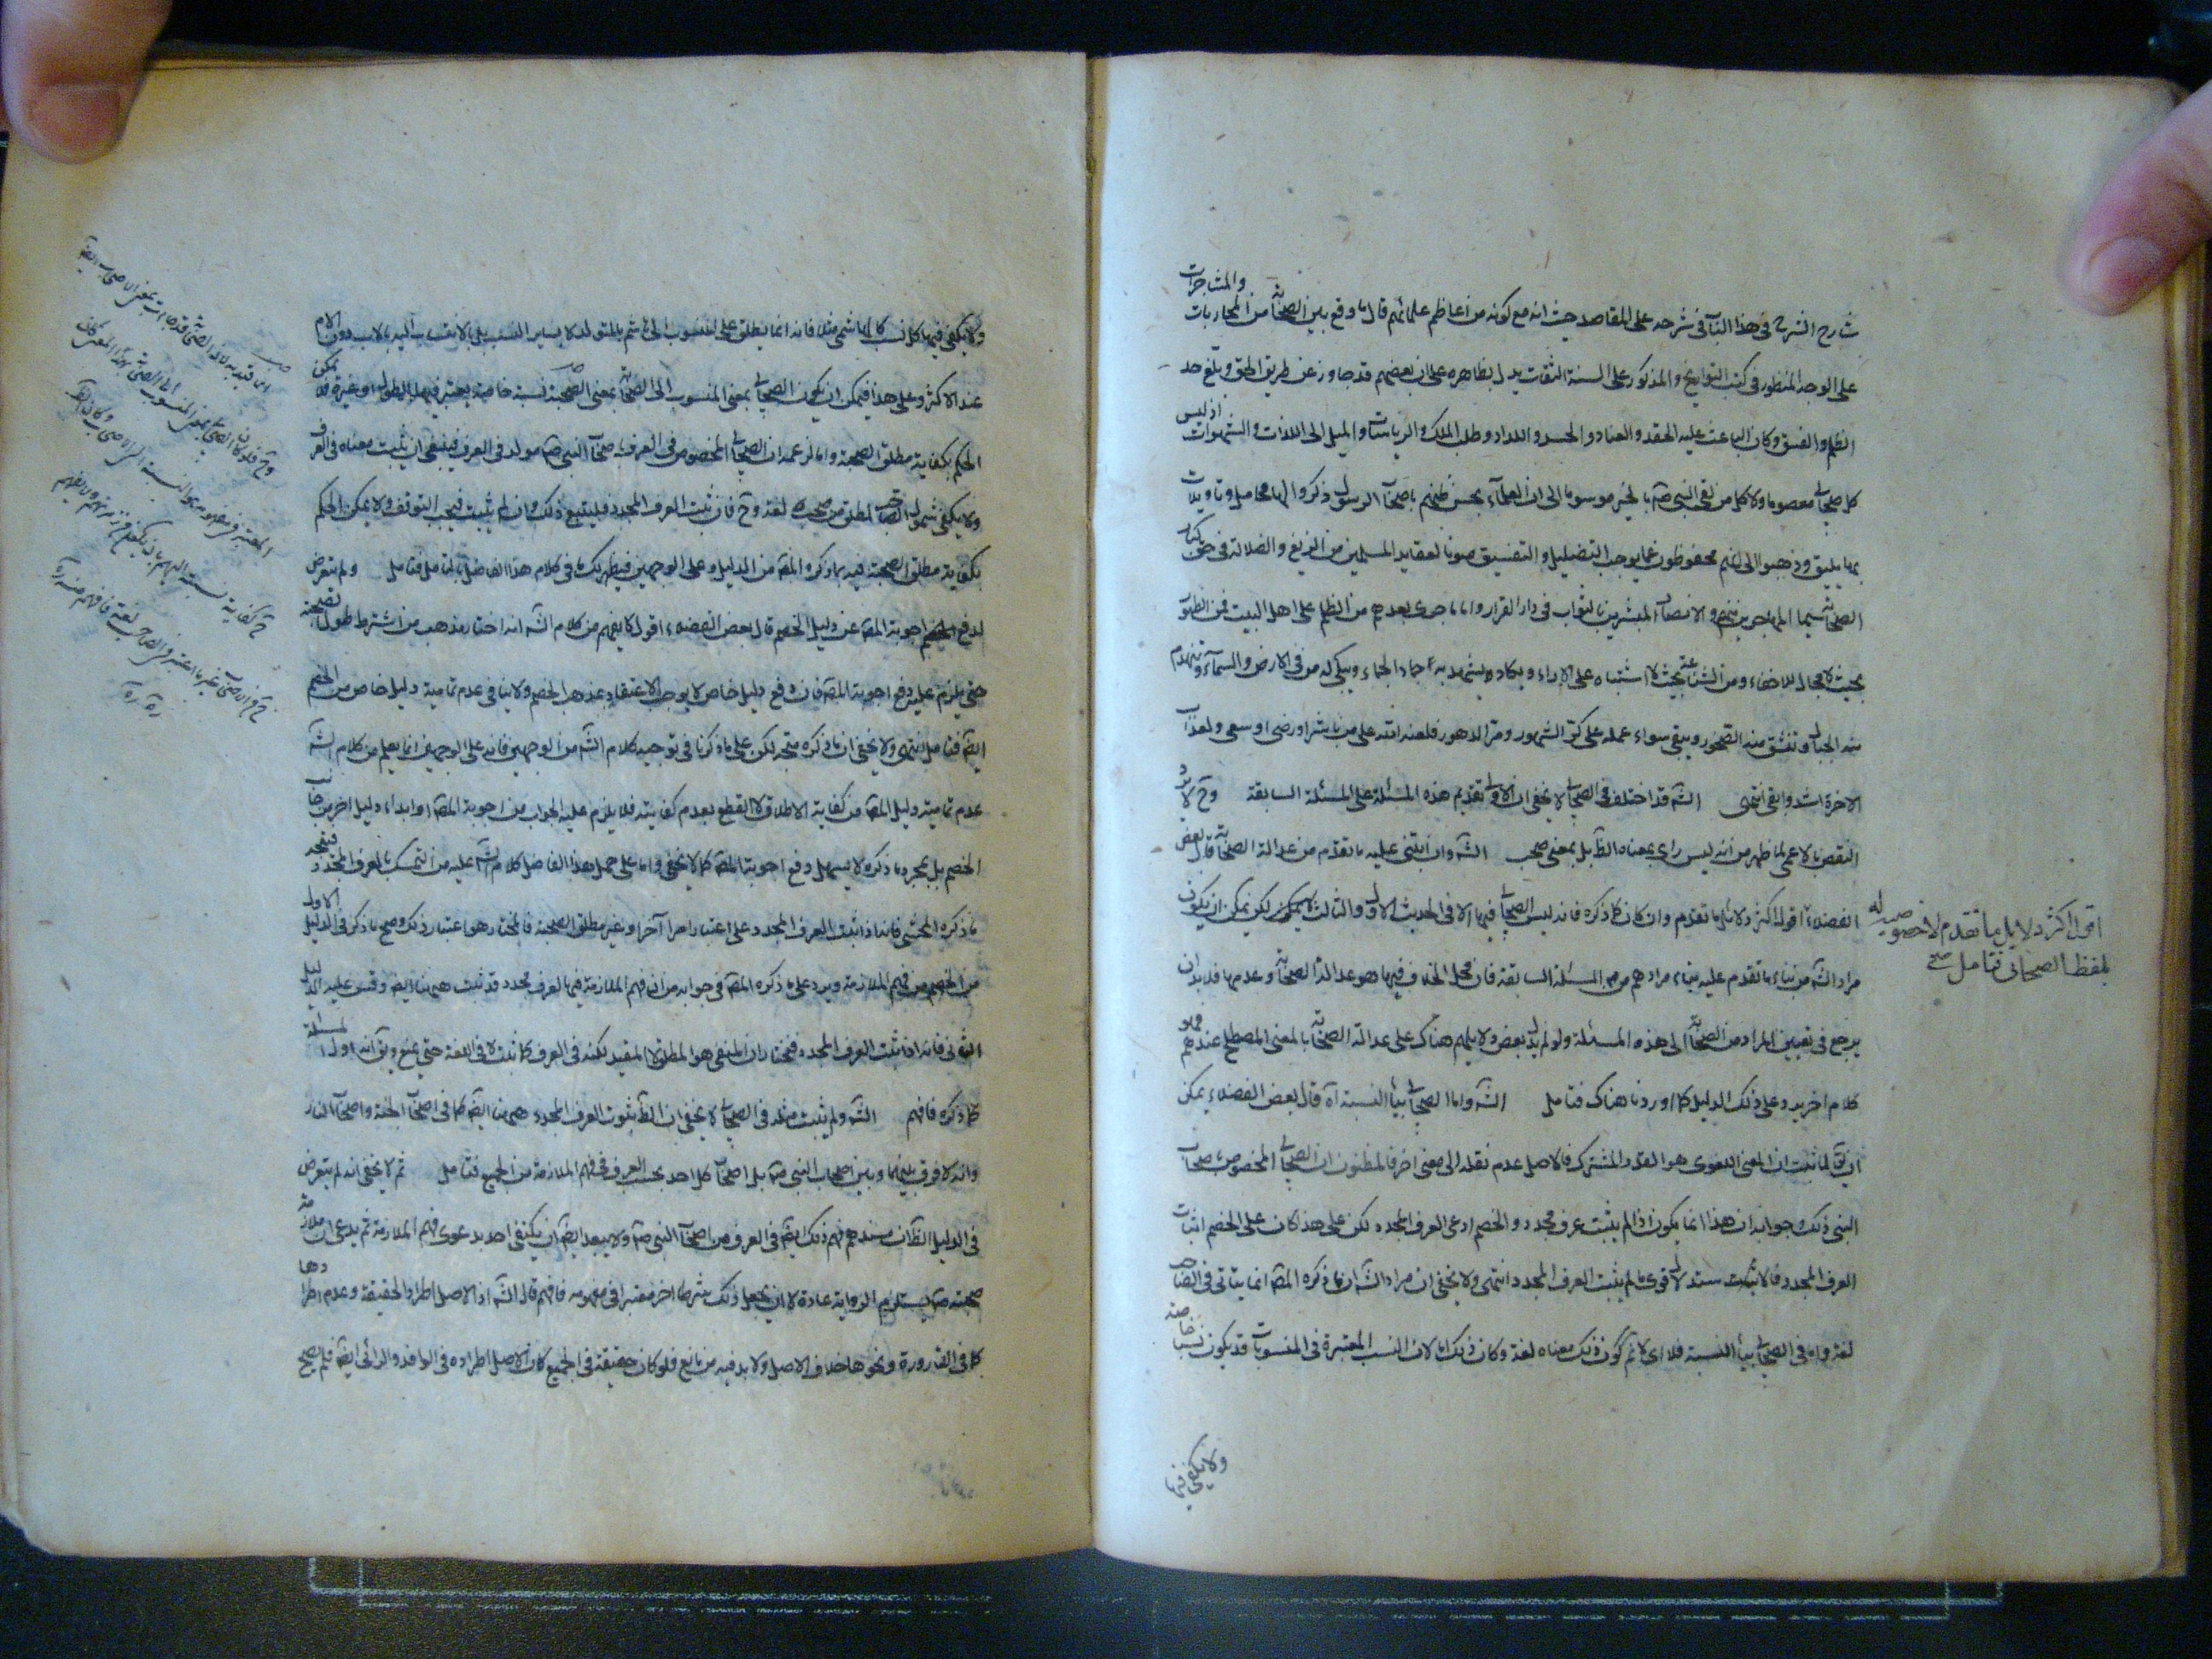 شارح الشرح في هذا الباب في شرحه على المقاصد حيث انه مع كونه من اعاظم علمائهم قال ما وقع بين الصحابة من المحاربات والمشاجرات
على الوجه المسطور في كتب التواريخ والمذكور على السنة الثقات يدل بظاهره على ان بعضهم قد جاوز عن طريق الحق وبلغ حد
الظلم والفسق وكان الباعث عليه الحقد والعناد والحسد واللداد وطلب الملك والرياسات والميل الى اللذات والشهوات اذ ليس
كل صحابي معصوما ولا كل من لقى النبي صم بالخير موسوما الا ان العلماء بحسن ظنهم باصحاب الرسول ذكروا لها محامل وتاويلات
بها يليق وذهبوا الى انهم محفوظون عما يوجب التضليل والتفسيق صونا لعقايد المسلمين من الزيغ والضلالة في حق كبار
الصحابة سيما المهاجرين منهم والانصار المبشرين بالثواب في دار القرار واما ما جرى بعدهم من الظلم على اهل البيت فمن الظهور
بحيث لا مجال للاخفاء ومن الشناعة بحيث لا اشتباه على الاراء ويكاد يشهد به الجماد العجماء ويبكي له من في الارض والسماء وتنهدم
منه الجبال وتنشق منه الصخور ويبقى سوء عمله على كر الشهور ومر الدهور فلعنة الله على من باشر او رضى او سعى ولعذاب
الاخرة اشد وابقى انتهى الشه قد اختلف في الصحابي لا يخفى ان الاولى تقديم هذه المسئلة على المسئلة السابقة وح لا يرد
النقض بالاعمى لما ظهر من انه ليس راى بمعناه الظ بل بمعنى صحب الشه وان ابتنى عليه ما تقدم من عدالة الصحابة قال بعض
الفضلاء اقول اكثر دلايل ما تقدم وان كان كما ذكره فانه ليس الصحابي فيها الا في الحديث الاول والثالث لكن يمكن ان يكون
مراد الشه من بناء ما تقدم عليه بناء مرادهم من المسئلة السابقة فان محل الخلاف فيها هو عدالة الصحابة وعدمها فلا بد ان
يرجع في تعيين المراد من الصحابة الى هذه المسئلة ولو لم يدل بعض دلايلهم هناك على عدالة الصحابة بالمعنى المصطلح عندهم فهو
كلام اخر يرد على ذلك الدليل كما اوردنا هناك فتامل الشه واما الصحابي بياء النسبة آه قال بعض الفضلاء يمكن
ان يق لما ثبت ان المعنى اللغوي هو القدر المشترك فالاصل عدم نقله الى معنى اخر فالمظنون ان الصحابي المخصوص بصحاب
النبي ذلك وجوابه ان هذا انما يكون اذا لم يثبت عرف مجدد والخصم ادعى العرف المجدد لكن على هذا كان على الخصم اثبات
العرف المجدد فالاستدلال قوي ما لم يثبت العرف المجدد انتهى ولا يخفى ان مراد الشه ان ما ذكره المصه انما يتاتى في الصاحب
لغة واما في الصحابي بياء النسبة فلا اى لا نم كون ذلك معناه لغة وكان ذلك اما لان النسب المعتبرة في المنسوبات قد يكون نسبا خاصة
ولا يكفى فيها
اقول اكثر دلايل ما تقدم لا خصوصية له
بلفظ الصحابي فتامل منه
ولا يكفى فيها كل نسب كالهاشمي مثلا فانه انما يطلق على المنسوب الى هاشم بالتولد لا بساير النسب بل بالانتساب اليه بالاب دون الام
عند الاكثر وعلى هذا فيمكن ان يكون الصحابي بمعنى المنسوب الى الصحابة بمعنى الصحبة نسبة خاصة يعتبر فيها الطول او غيره فلا يمكن
الحكم بكفاية مطلق الصحبة واما لزعمه ان الصحابي المخصوص في العرف بصحاب النبي صم مولد في العرف فينبغي ان يثبت معناه في العرف
ولا يكفى شمول الصاحب لمطلق من صحبه لغة وح فان ثبت العرف المجدد فليتبع ذلك وان لم يثبت فيجب التوقف ولا يمكن الحكم
بكفاية مطلق الصحبة فيه بما ذكره المصه من الدليل وعلى الوجهين فيظهر لك ما في كلام هذا الفاضل بالتامل فتامل ولم يتعرض
لدفع اجوبة المصه عن دليل الخصم قال بعض الفضلاء اقول لا يفهم من كلام الشه انه اختار مذهب من اشترط طول الصحبة
حتى يلزم عليه دفع اجوبة المصه فان دفع دليل خاص لا يوجب الاعتقاد بمذهب الخصم ولا ينافى عدم تمامية دليل خاص من الخصم
ايضه فتامل انتهى ولا يخفى ان ما ذكره متجه لكن على ما ذكرنا في توجيه كلام الشه من الوجهين فانه على الوجهين انما يعلم من كلام الشه
عدم تمامية دليل المصه من كفاية الاطلاق لا القطع بعدم كفايته فلا يلزم عليه الجواب من اجوبة المصه او ابداء دليل اخر من جانب
الخصم بل بمجرد ما ذكره لا يسهل دفع اجوبة المصه كما لا يخفى واما على حمل هذا الفاضل كلام الشه عليه من التمسك بالعرف المجدد فيتجه
ما ذكره المحشى فانه اذا ثبت العرف المجدد على اعتبار امر آخر او غير مطلق الصحبة فالمختار هو اعتبار ذلك وصح ما ذكر في الدليل الاول
من الخصم من فهم الملازمة ويرد على ما ذكره المصه في جوابه من ان فهم الملازمة فيها لعرف مجدد قد ثبت ههنا ايضه وقس عليه الدليل
الثاني فانه اذا ثبت العرف المجدد فيختار ان المنفى هو المطلق لا المقيد لكنه في العرف كما ثبت لا في اللغة حتى يمنع ويق انه اول المسئلة
كما ذكره فافهم الشه ولم يثبت مثله في الصحابي لا يخفى ان الظ ثبوت العرف المجدد ههنا ايضه كما في اصحاب الجنة واصحاب النار
وانه لا فرق بينهما وبين اصحاب النبي صم بل اصحاب كل احد بحسب العرف في فهم الملازمة من الجميع فتامل ثم لا يخفى انه لم يتعرض
في الدليل الظ ان مستندهم فهم ذلك ايضه في العرف من اصحاب النبي صم ولا يبعد ايضه ان يكتفى احد بدعوى فهم الملازمة ثم يدعى ان ملازمة
صحبته صم يستلزم الرواية عادة لا ان يجعل ذلك شرطا اخر معتبرا في مفهومه فافهم قال الشه اذ الاصل اطراد الحقيقة وعدم اطرادها
كما في القارورة ونحوها خلاف الاصل ولا بد فيه من مانع فلو كان حقيقة في الجميع كان الاصل اطراده في الوافد والرائى ايضه فلم يصح